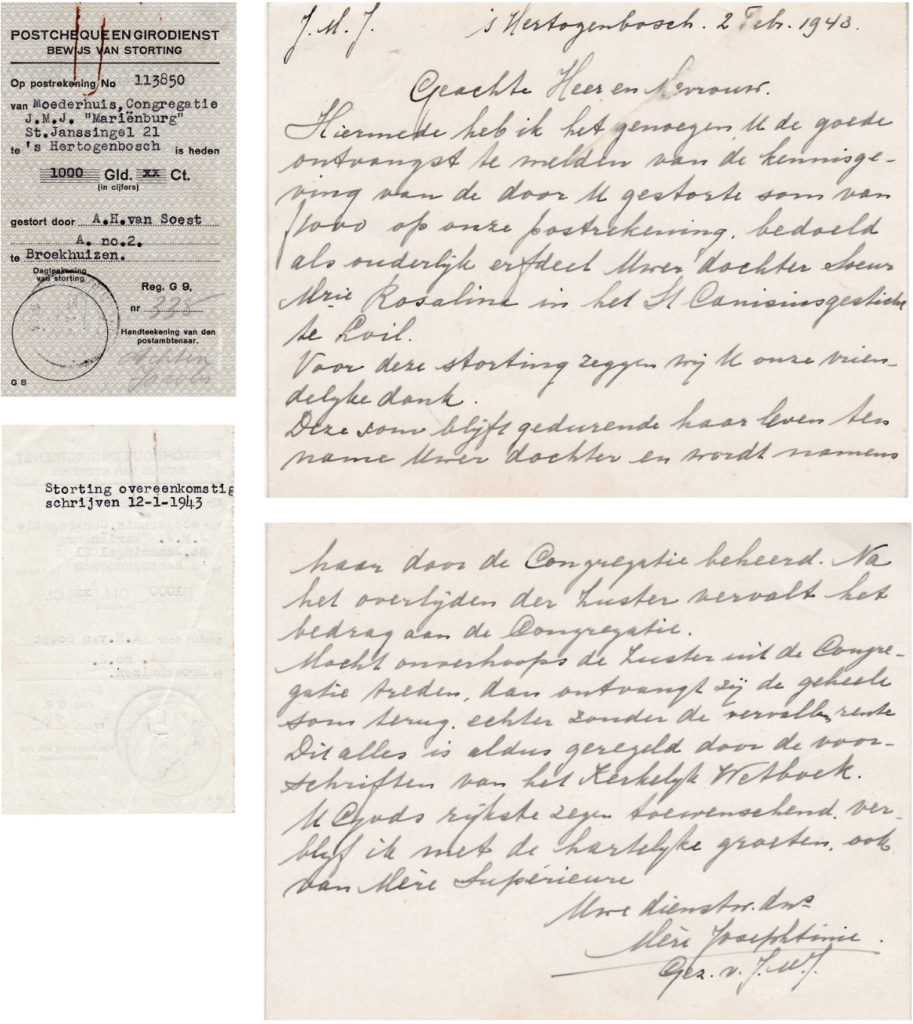 POSTCHEQUE EN GIRODIENST
BEWIJS VAN STORTING
Op postrekening No 113850
van Moederhuis, Congregatie
J.M.J. "Mariënburg"
St. Janssingel 21
te 's Hertogenbosch is heden
1000 Gld. xx Ct.
(in cijfers)
gestort door A.H.van Soest
A. no.2.
te Broekhuizen.
Dagteekening
van storting
Reg. G 9,
nr 338
Handteekening van den
postambtenaar.
G 8
Storting overeenkomstig
schrijven 12-1-1943
J. M. J. 's Hertogenbosch. 2 Feb. 1943.
Geachte Heer en Mevrouw.
Hiermede heb ik het genoegen U de goede
ontvangst te melden van de kennisge-
ving van de door U gestorte som van
ƒ1000 op onze postrekening, bedoeld
als ouderlijk erfdeel Uwer dochter Soeur
Mrie Rosaline in het St Canisiusgesticht
te Loil.
Voor deze storting zeggen wij U onze vrien-
delijke dank.
Deze som blijft gedurende haar leven ten
name Uwer dochter en wordt namens
haar door de Congregatie beheerd. Na
het overlijden der Zuster vervalt het
bedrag aan de Congregatie.
Mocht onverhoops de Zuster uit de Congre-
gatie treden, dan ontvangt zij de geheele
som terug, echter zonder de vervallen rente
Dit alles is aldus geregeld door de voor-
schriften van het Kerkelijk Wetboek.
U Gods rijkste zegen toewenschend, ver-
blijf ik met de hartelijke groeten, ook
van Mère Supérieure
Uwe dienstw. dns
Mère Josephtinie.
Gez. v. J. M. J.